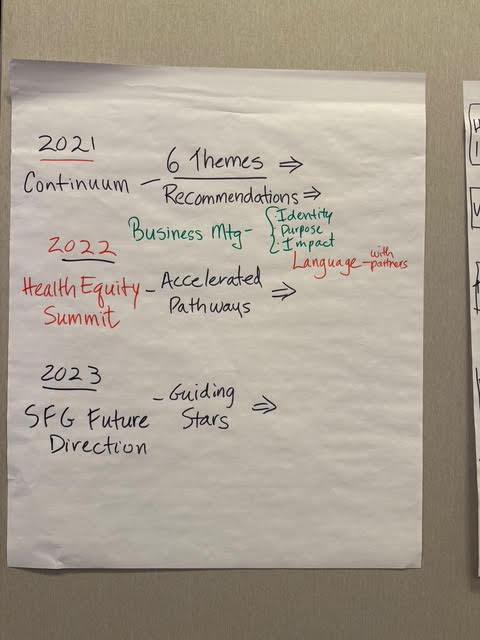 2021
Continuum – 6 Themes ⇒
Recommendations ⇒
Business Mtg – { Identity
Purpose
· Impact
2022
Language – with partners
Health Equity Summit – Accelerated Pathways ⇒
2023
SFG Future Direction – Guiding Stars ⇒